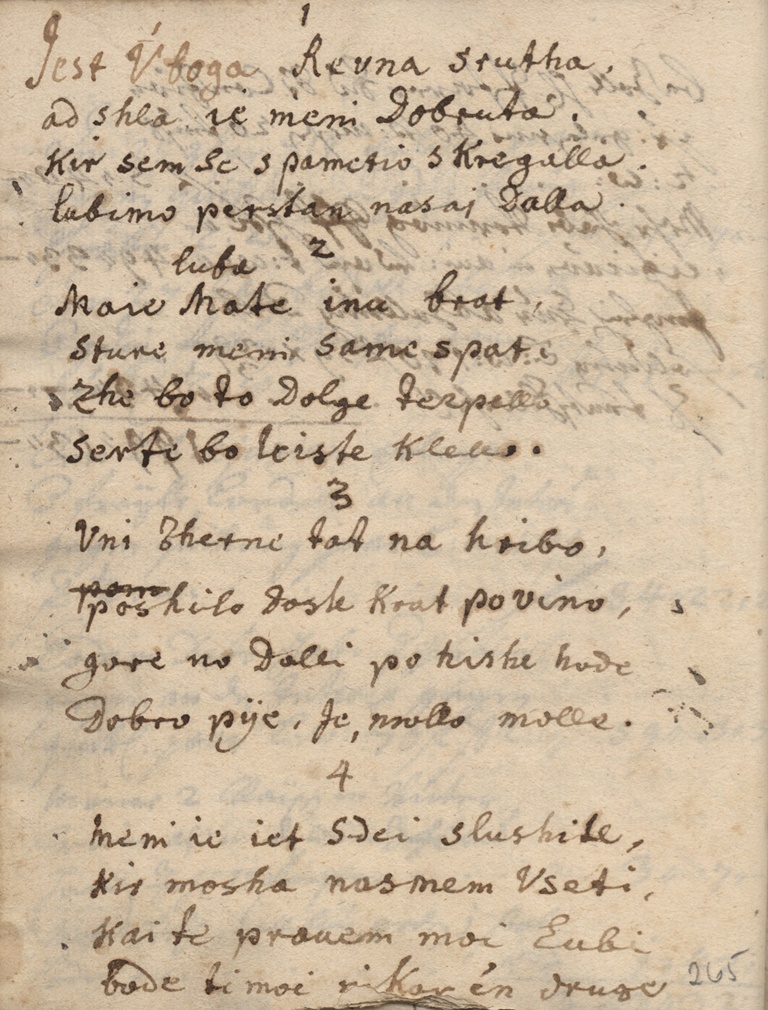 1
Jest Vboga Revna srutha,
ad shla ie meni Dobruta.
Kir sem Se spametio sKregalla.
lubimo perstan nasai Dalla.
2
lube
Maie Mate inu brat,
Sture meni Same spati
Zhe bo to Dolge terpello
Serte bo leiste Klello.
3
Vni Zherne tat na hribo,
poshilo dosle Krat po vino,
gore no Dolli po hishe hode
Dobro pÿe, Je, mollo molle.
4
Meni ie iet Sdei slushite,
Kir mosha nasmem Vseti,
Kai te prauem moi Lubi
bode ti moi Kar én druge
265